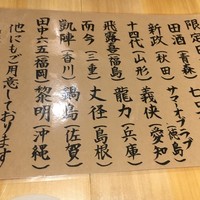 限定日
田酒(青森 七田
新政(秋田) サマーオブラブ(徳島)
十四代(山形) 義侠(愛知)
飛露喜(福島) 龍力(兵庫)
而今(三重) 丈径(島根)
凱陣(香川) 鍋島(佐賀)
田中六五(福岡) 黎明(沖縄)
他にもご用意しております